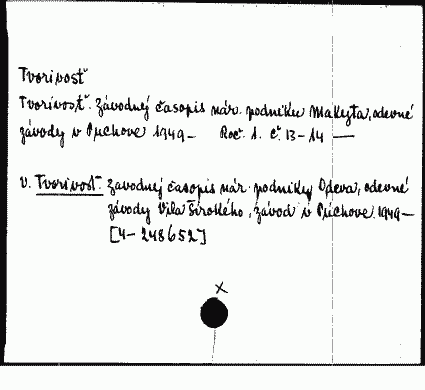 Tvorivosť
Tvorivosť. Závodnej časopis nár. podniku Makyta, odevné
závody v Púchove 1949– Roč. 1. č. 13–14 —
v. Tvorivosť. Závodnej časopis nár. podniky Odeva, odevné
závody Vila Širokého, závod v Púchove. 1949–
[4–248652]
x